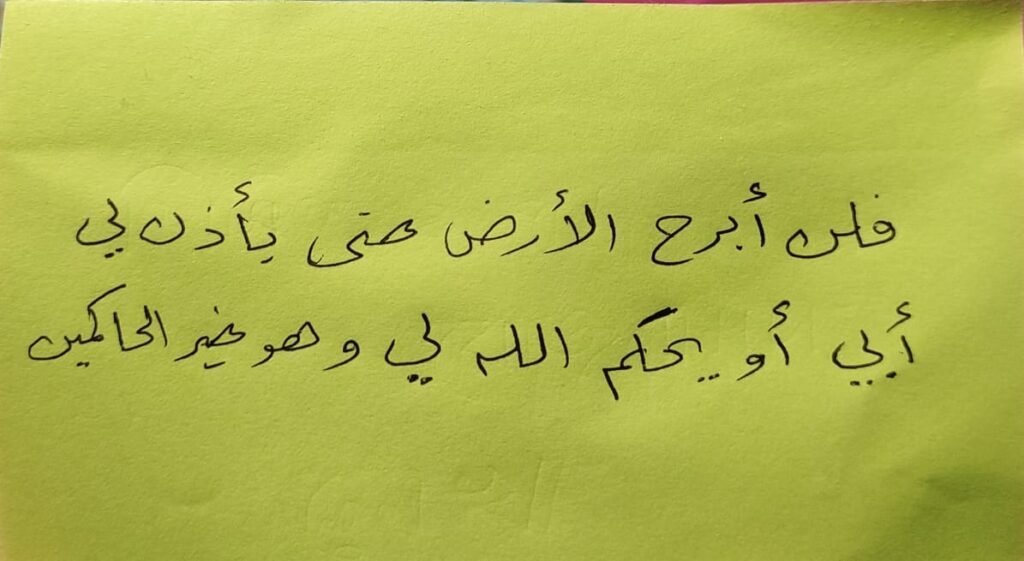 فلن أبرح الأرض حتى يأذن لي
أبي أو يحكم الله لي وهو خير الحاكمين